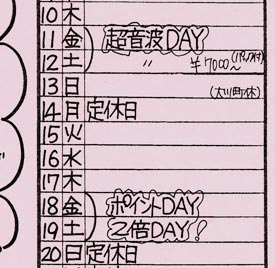 10 木
11 金 超音波DAY
12 土 〃 ¥7000〜
13 日
14 月 定休日
15 火
16 水
17 木
18 金 ポイントDAY
19 土 2倍DAY!
20 日 定休日